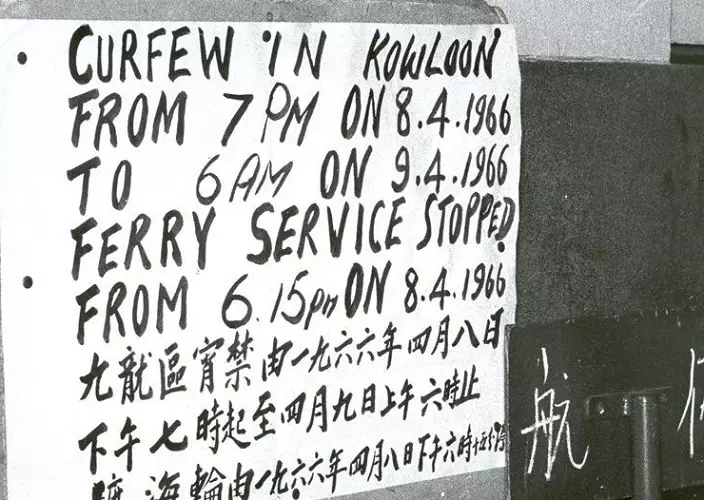 CURFEW IN KOWLOON
FROM 7 PM ON 8.4.1966
TO 6 AM ON 9.4.1966
FERRY SERVICE STOPPED
FROM 6.15pm ON 8.4.1966
九龍區宵禁由一九六六年四月八日
下午七時起至四月九日上午六時止
渡海輪由一九六六年四月八日下午六時十五分停
航